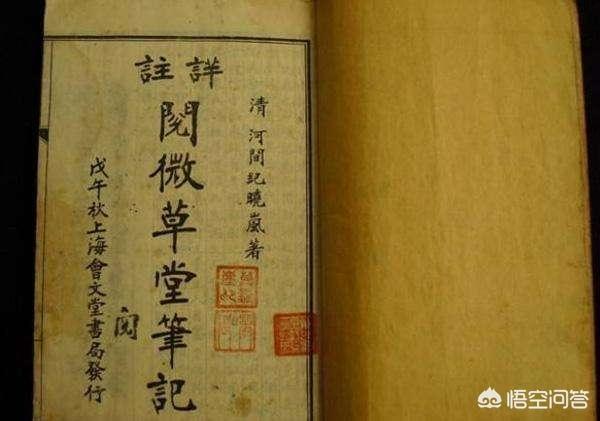 清 河間紀曉嵐著
詳註
閱微草堂筆記
閱
戊午秋上海會文堂書局發行
悟空问答